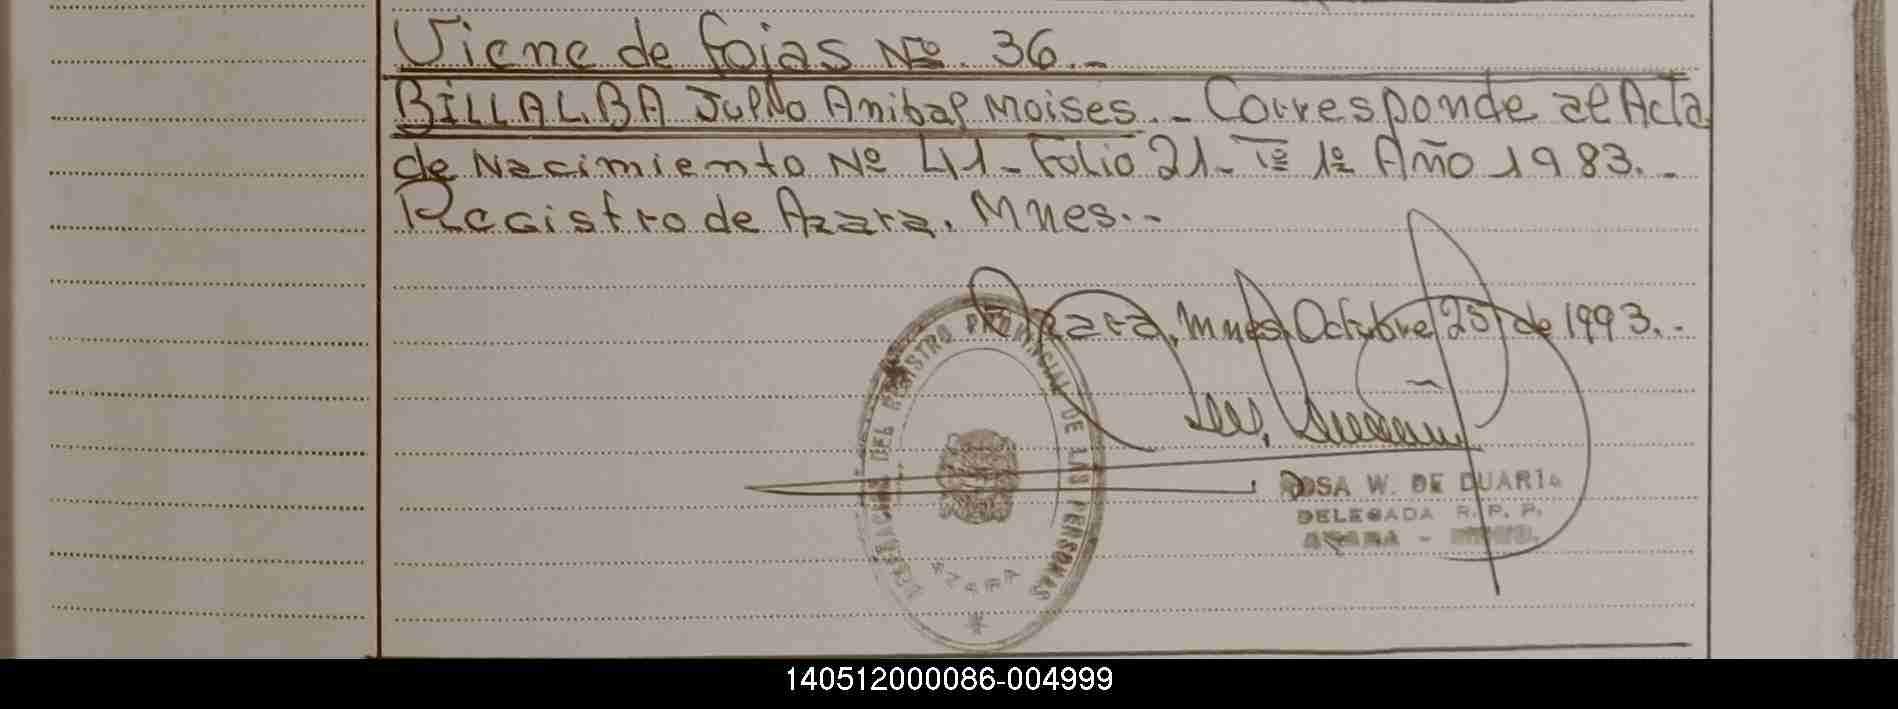 Viene de fojas Nº. 36.-
BILLALBA Julio Anibal Moises.- Corresponde al Acta
de Nacimiento Nº 41- Folio 21- Tº 1º Año 1983.-
Registro de Azara. Mnes.-
Azara, Mnes, Octubre 25 de 1993.-
DELEGACION DEL REGISTRO PROVINCIAL DE LAS PERSONAS
AZARA
ROSA W. DE DUARTE
DELEGADA R. P. P.
AZARA -
140512000086-004999